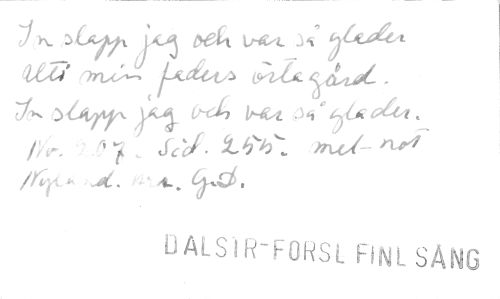 In slapp jag och var så glader
alti min faders örtagård.
In slapp jag och var så glader.
No. 207. Sid. 255. mel-not
Nyland. G.D.
DALSTR-FORSL FINL SÅNG